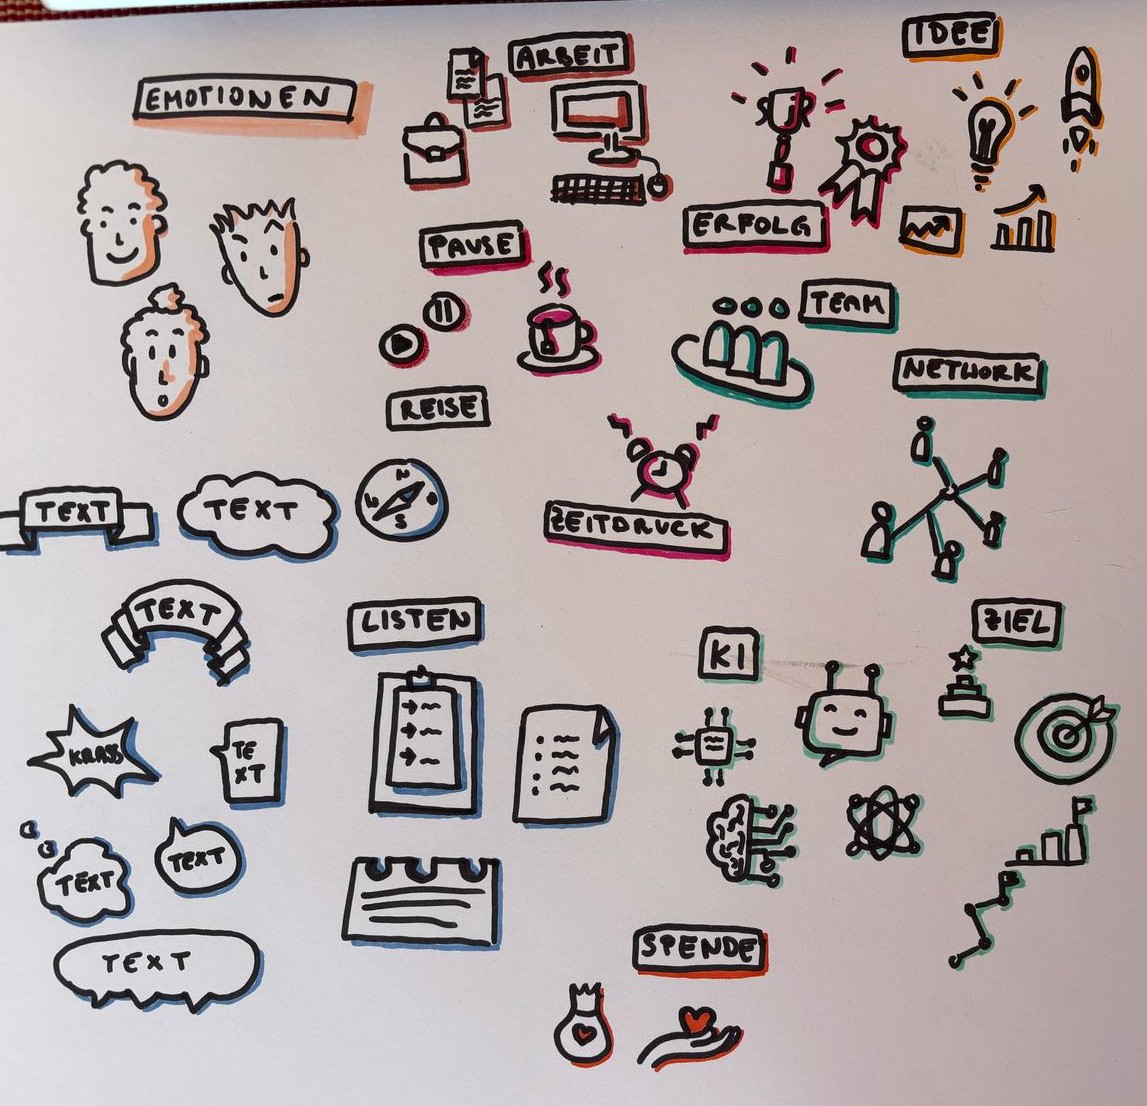 IDEE
ARBEIT
EMOTIONEN
ERFOLG
PAUSE
TEAM
NETWORK
REISE
N
W O
S
TEXT
TEXT
ZEITDRUCK
TEXT
LISTEN
KI
ZIEL
KRASS
TE
XT
TEXT
TEXT
TEXT
SPENDE